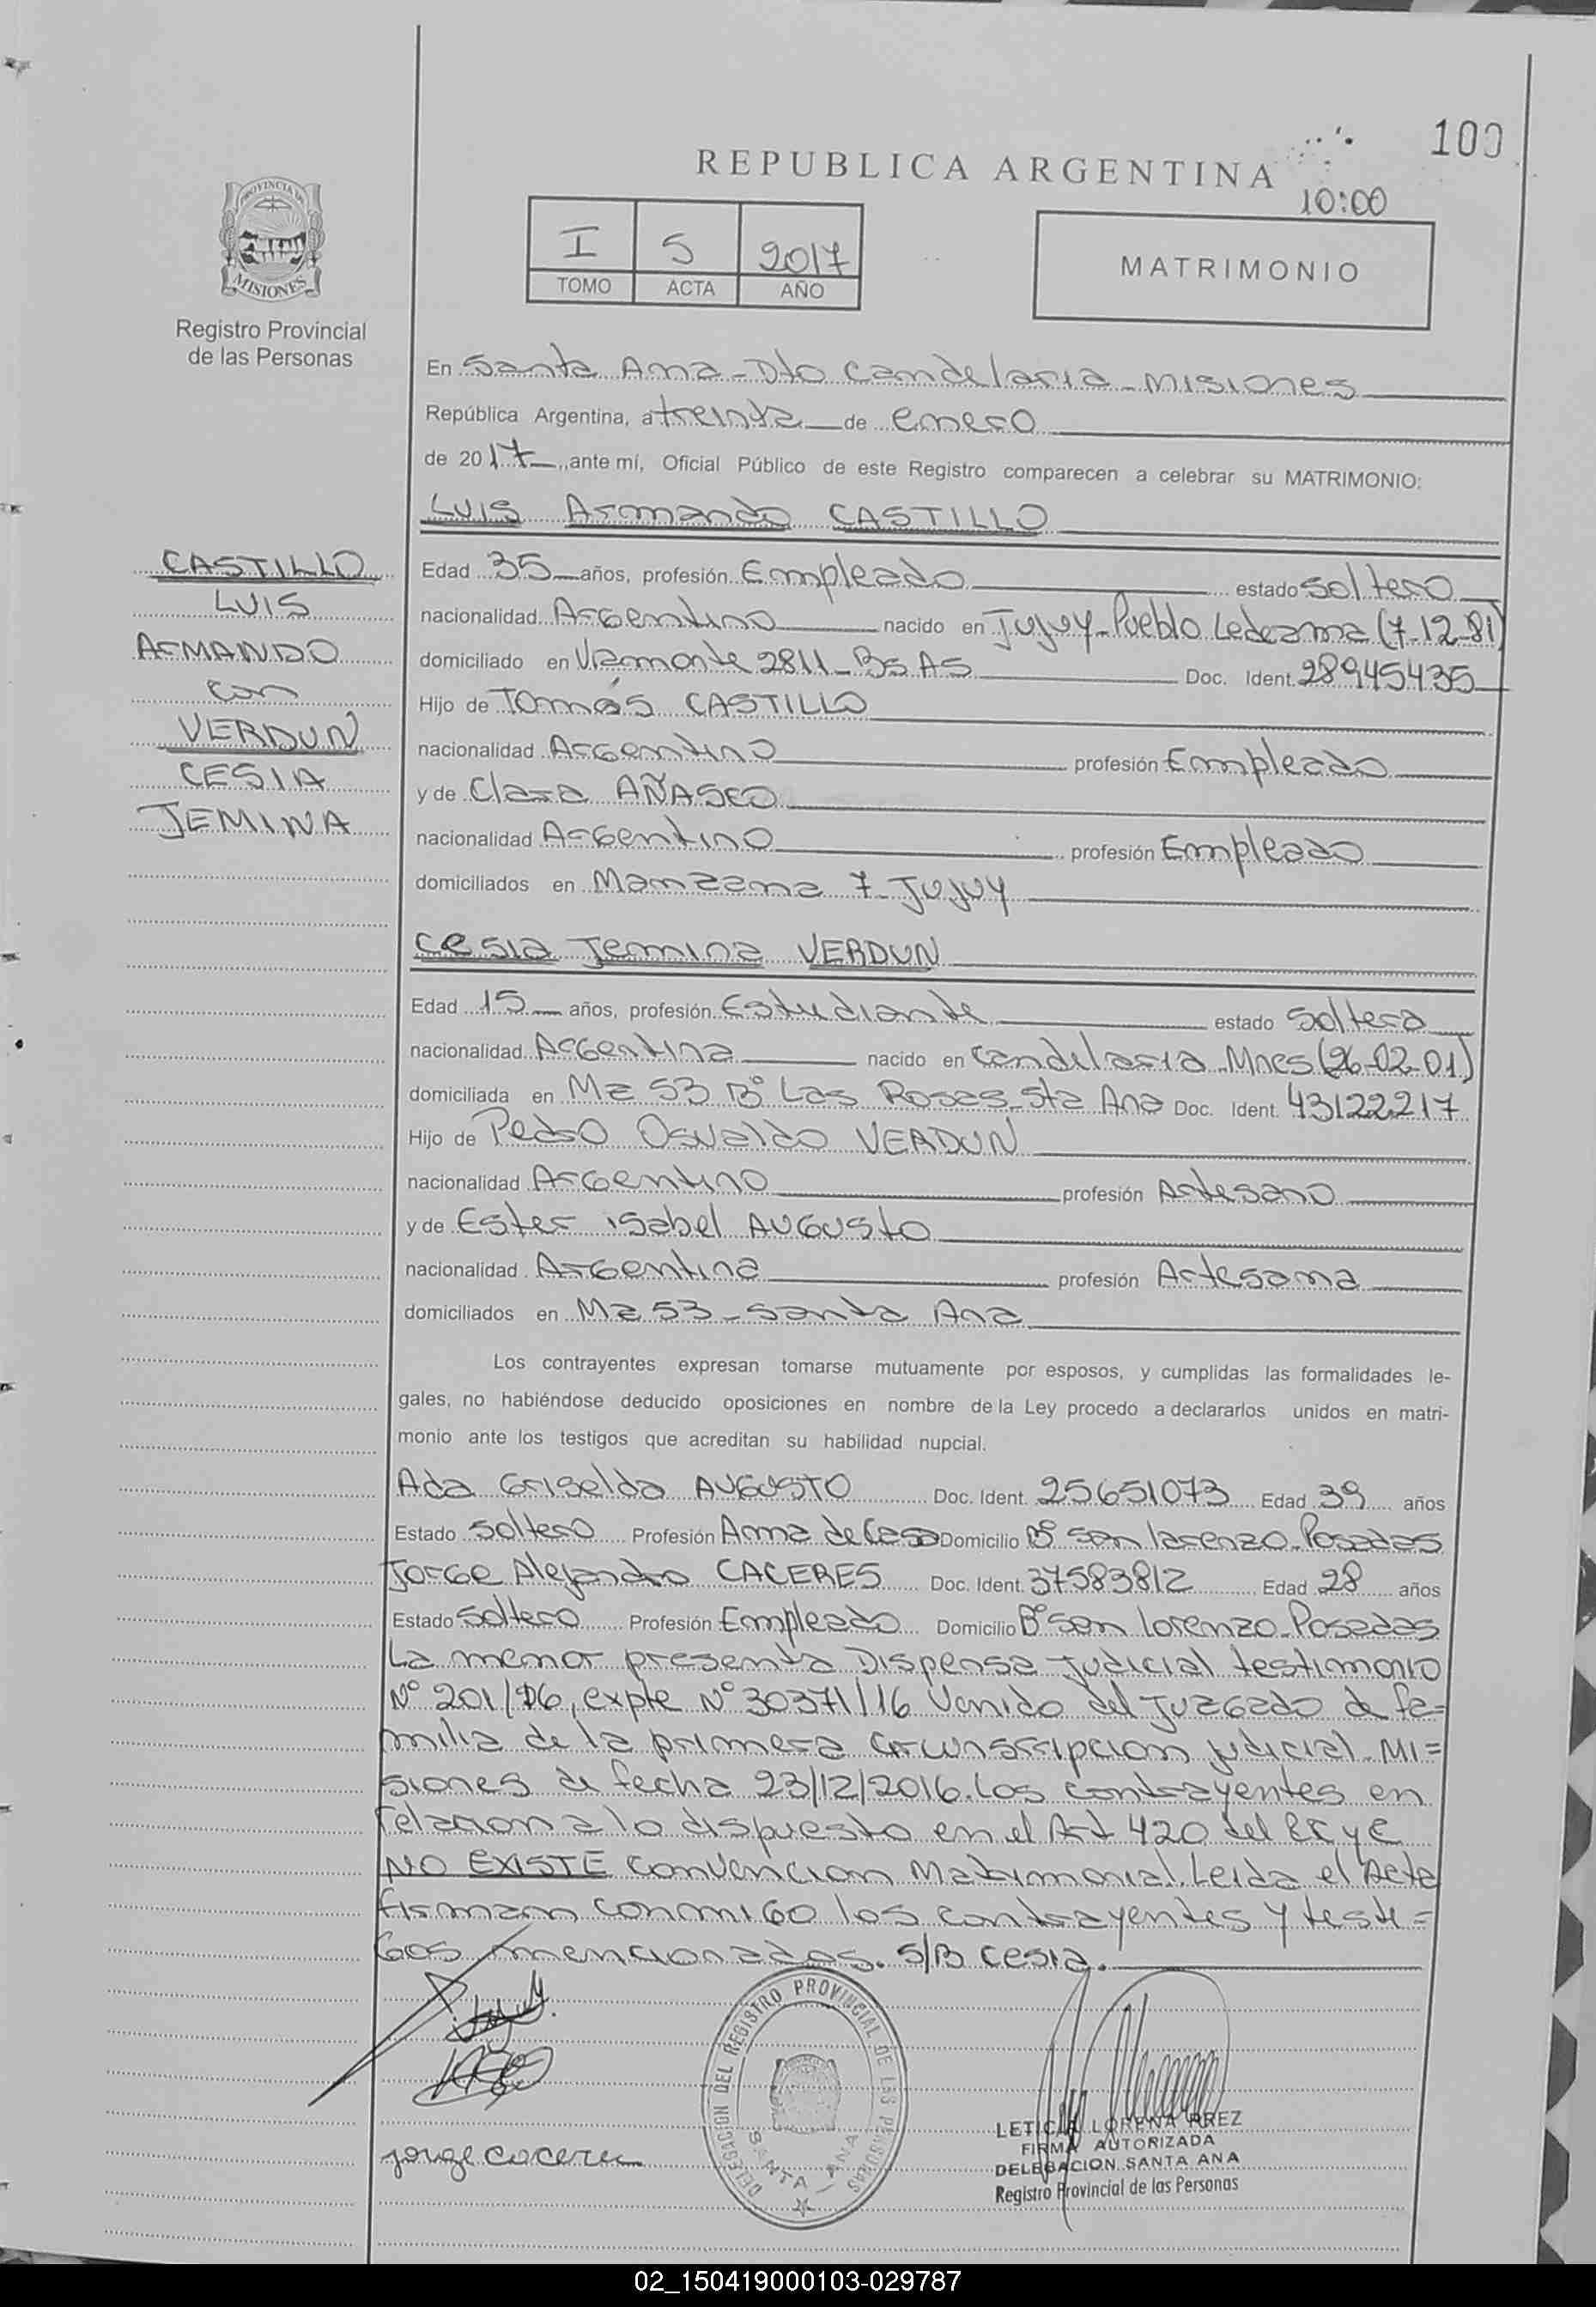 100
REPUBLICA ARGENTINA
10:00
PROVINCIA DE
MISIONES
Registro Provincial
de las Personas
I 5 2017
TOMO ACTA AÑO
MATRIMONIO
En Santa Ana - Dto Candelaria - Misiones
República Argentina, a treinta de enero
de 2017, ante mí, Oficial Público de este Registro comparecen a celebrar su MATRIMONIO:
LUIS Armando CASTILLO
CASTILLO
LUIS
ARMANDO
con
VERDUN
CESIA
JEMINA
Edad 35 años, profesión Empleado estado soltero
nacionalidad Argentino nacido en Jujuy-Pueblo Ledezma (7-12-81)
domiciliado en Viamonte 2811 - Bs As Doc. Ident. 28945435
Hijo de Tomás CASTILLO
nacionalidad Argentino profesión Empleado
y de Clara AÑASCO
nacionalidad Argentino profesión Empleado
domiciliados en Manzana 7 - Jujuy
Cesia Jemina VERDUN
Edad 15 años, profesión Estudiante estado Soltera
nacionalidad Argentina nacido en Candelaria - Mnes (26-02-01)
domiciliada en Mz 53 Bº Las Rosas - Sta Ana Doc. Ident. 43122217
Hijo de Pedro Osvaldo VERDUN
nacionalidad Argentino profesión Artesano
y de Ester isabel AUGUSTO
nacionalidad Argentina profesión Artesana
domiciliados en Mz 53 - Santa Ana
Los contrayentes expresan tomarse mutuamente por esposos, y cumplidas las formalidades le-
gales, no habiéndose deducido oposiciones en nombre de la Ley procedo a declararlos unidos en matri-
monio ante los testigos que acreditan su habilidad nupcial.
Ada Griselda AUGUSTO Doc. Ident. 25651073 Edad 39 años
Estado Soltero Profesión Ama de Casa Domicilio Bº San Lorenzo - Posadas
Jorge Alejandro CACERES Doc. Ident. 37583812 Edad 28 años
Estado Soltero Profesión Empleado Domicilio Bº San Lorenzo - Posadas
La menor presenta Dispensa Judicial testimonio
Nº 201/16, expte Nº 30371/16 Venido del Juzgado de fa=
milia de la primera Circunscripcion judicial - Mi=
siones de fecha 23/12/2016. Los contrayentes en
relacion a lo dispuesto en el Art 420 del CC y C
NO EXISTE Convencion Matrimonial. Leida el Acta
firman conmigo los contrayentes y testi=
gos mencionados. S/B Cesia.
jorge caceres
DELEGACION DEL REGISTRO PROVINCIAL DE LAS PERSONAS
SANTA ANA
LETICIA LORENA
FIRMA AUTORIZADA
DELEGACION SANTA ANA
Registro Provincial de las Personas
02_150419000103-029787